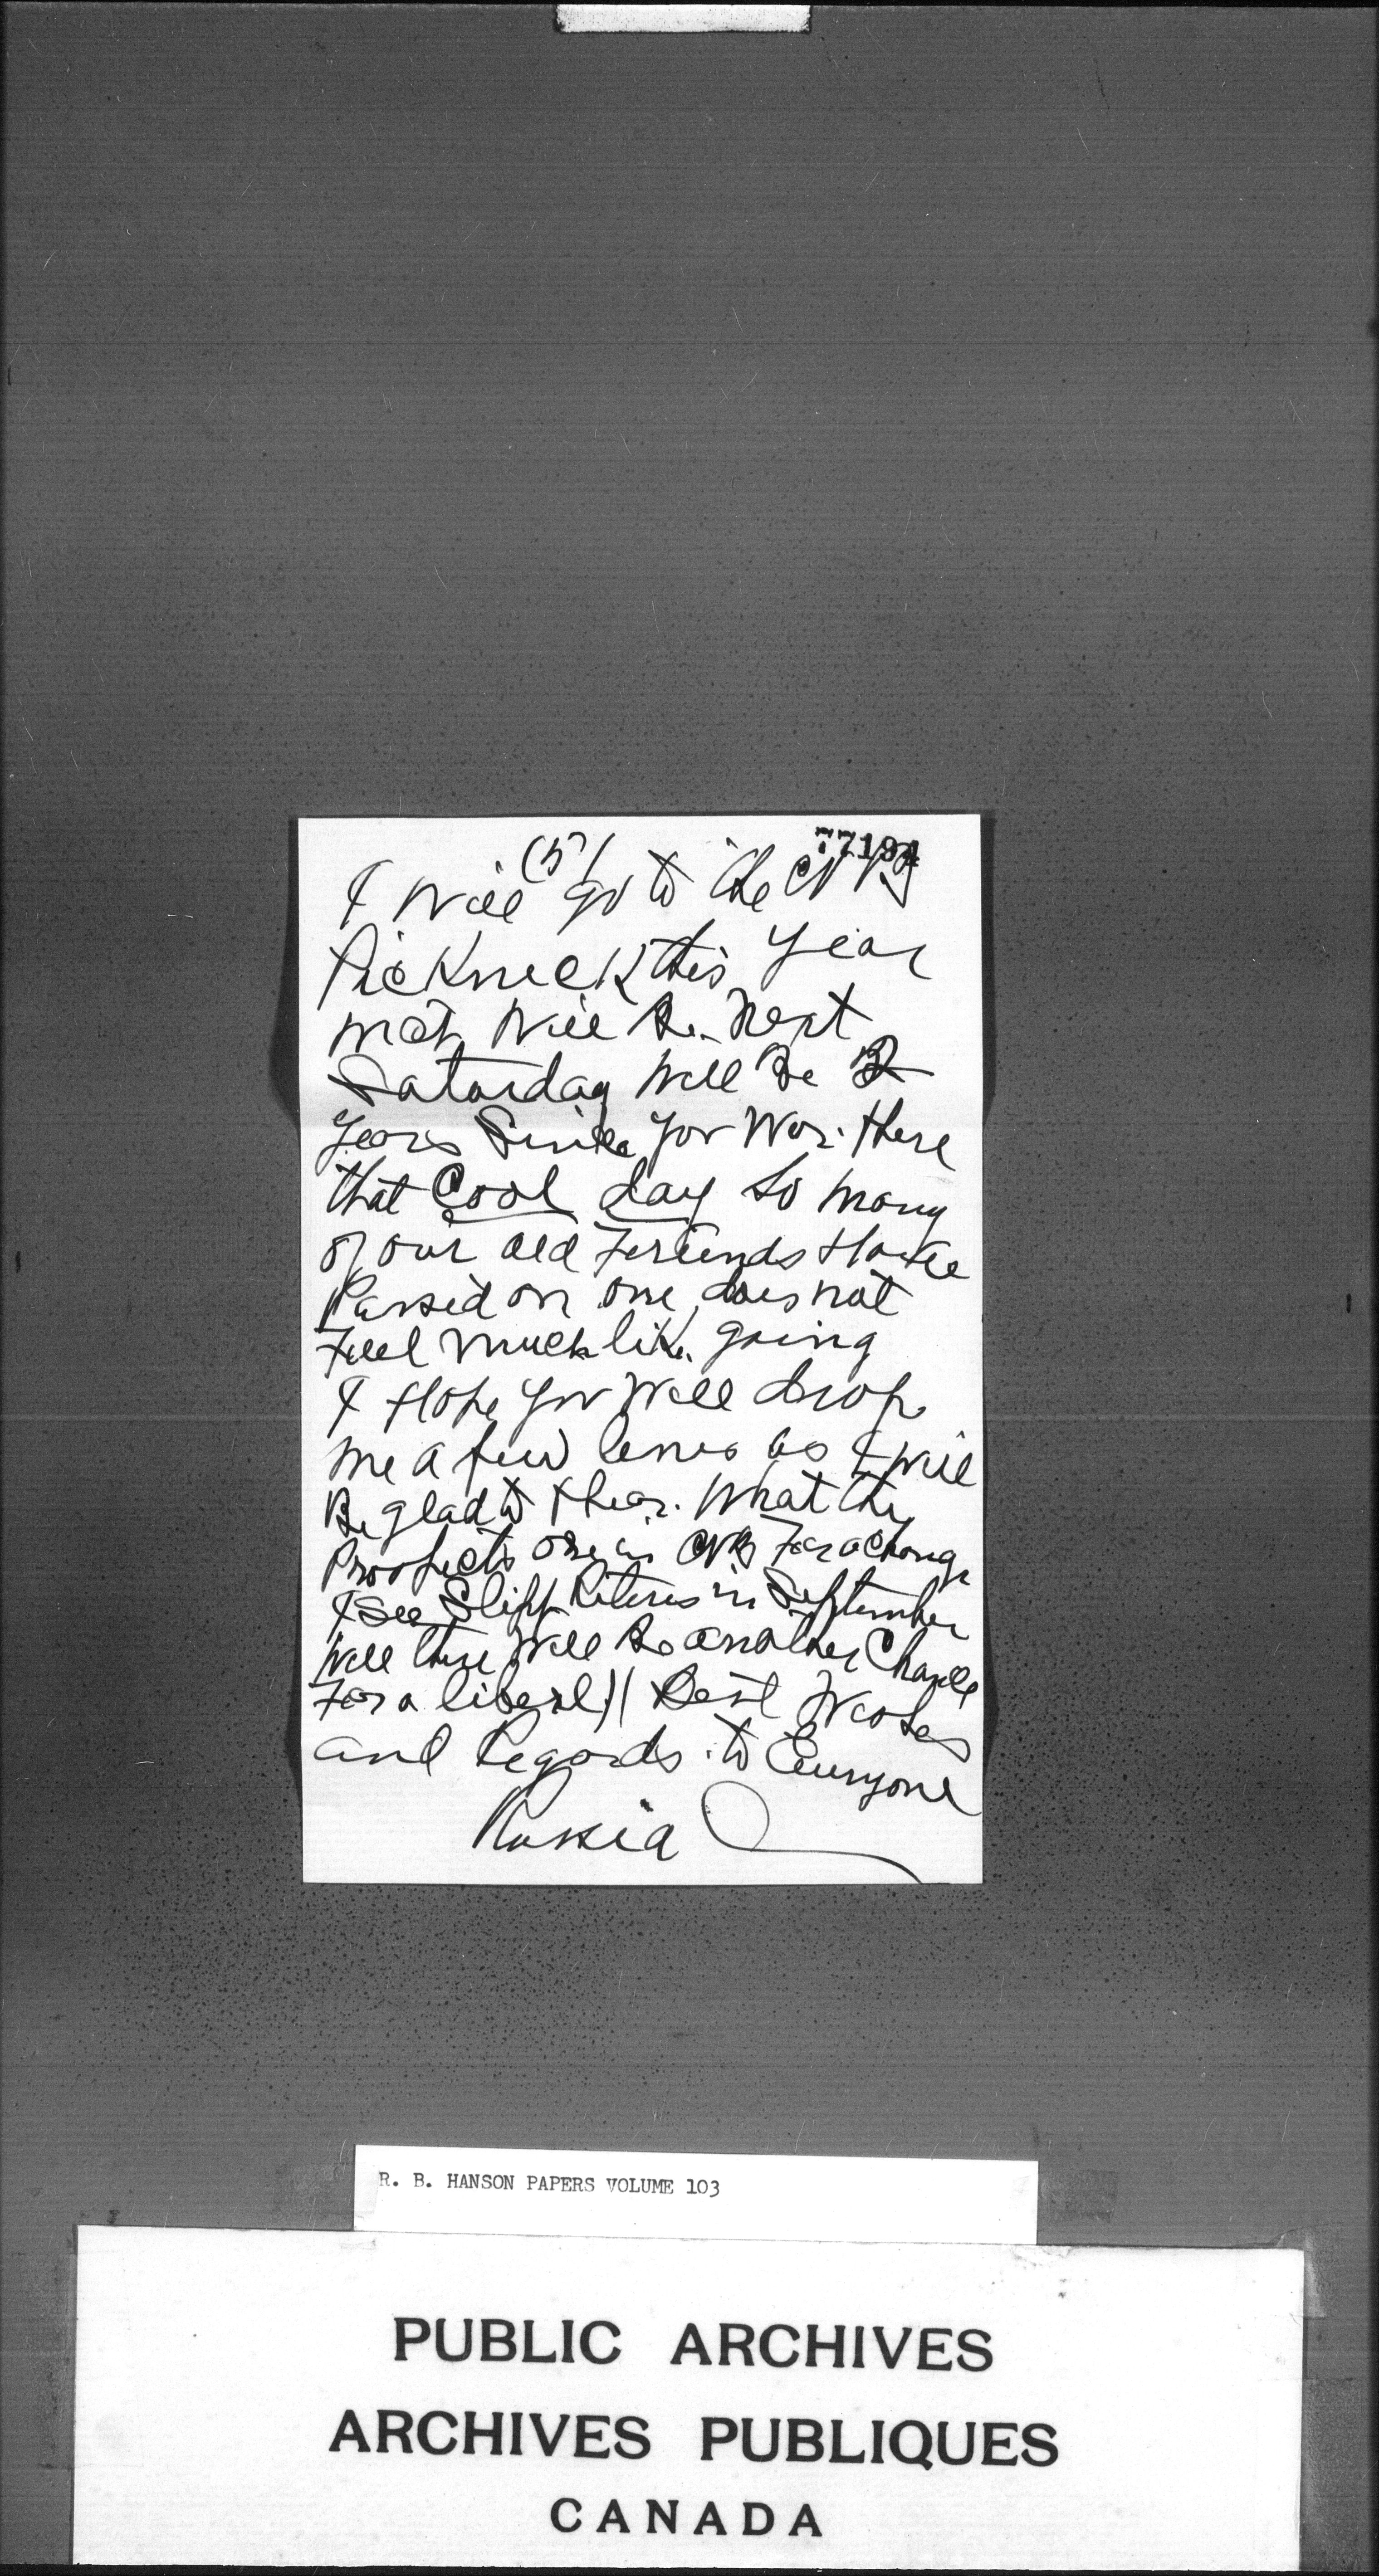 (5)
77194
I Will go to the N B
Picknick this year
Will Be Next
Saturday Will Be 2
years Since you War there
that Cool day So many
of our old Feriends Have
Passed on one does not
Feel much like going
I Hope you Will drop
me a few lines as I will
Be glad to Hear. What the
Prospects are in NB For a Change
I See Slipp Retires in September
Well there Will Be another Chance
For a liberl!! Best Wishes
and Regards to Everyone
R. B. HANSON PAPERS VOLUME 103
PUBLIC ARCHIVES
ARCHIVES PUBLIQUES
CANADA